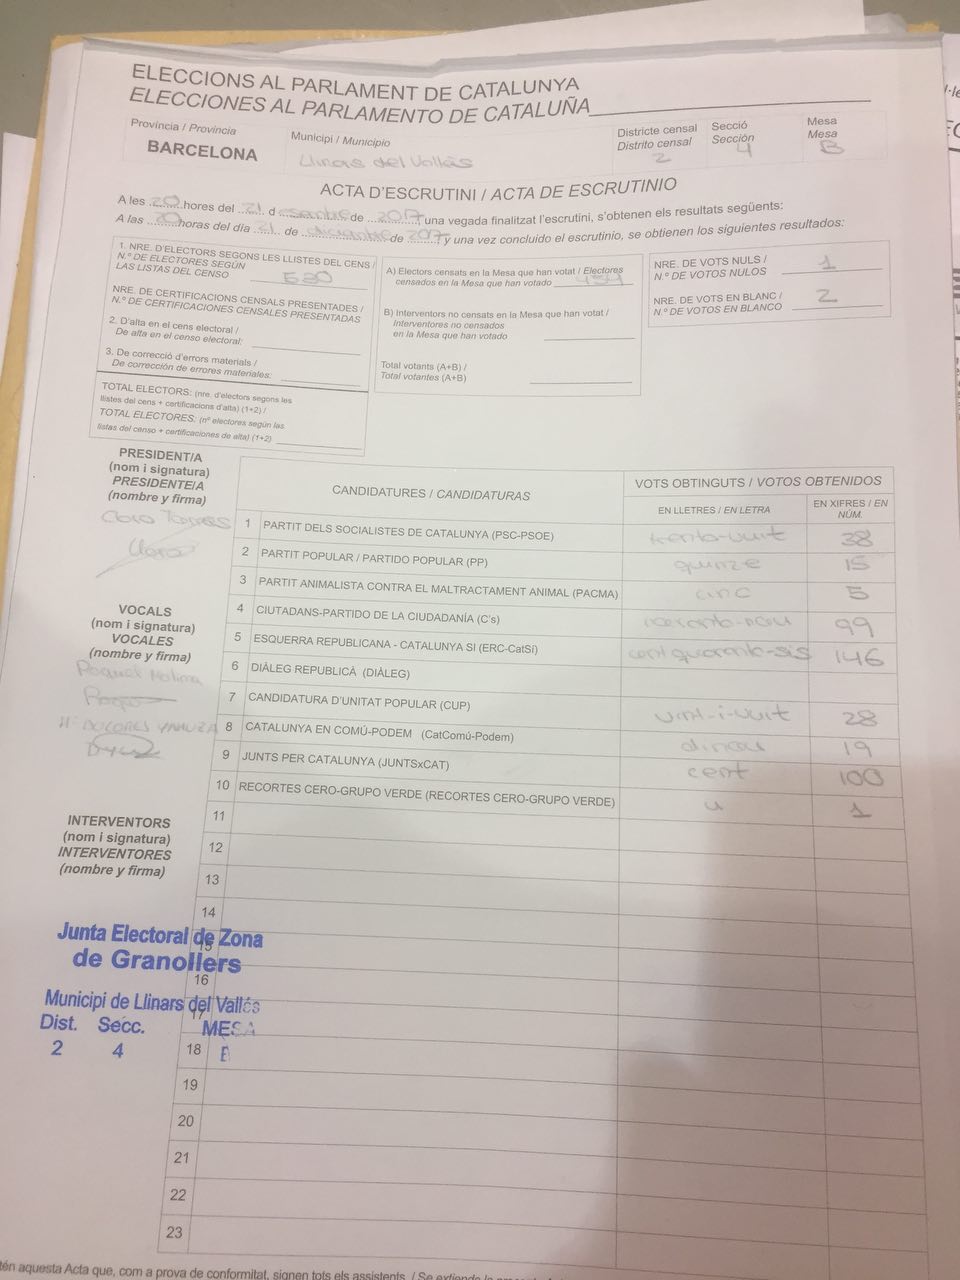 ELECCIONS AL PARLAMENT DE CATALUNYA
ELECCIONES AL PARLAMENTO DE CATALUÑA
Província / Provincia
BARCELONA
Municipi / Municipio
Llinars del Vallès
Districte censal
Distrito censal
2
Secció
Sección
4
Mesa
Mesa
B
ACTA D'ESCRUTINI / ACTA DE ESCRUTINIO
A les 20 hores del 21 d de 2017 una vegada finalitzat l'escrutini, s'obtenen els resultats següents:
A las 20 horas del día 21 de diciembre de 2017 y una vez concluido el escrutinio, se obtienen los siguientes resultados:
1. NRE. D'ELECTORS SEGONS LES LLISTES DEL CENS /
N.º DE ELECTORES SEGÚN
LAS LISTAS DEL CENSO 530
NRE. DE CERTIFICACIONS CENSALS PRESENTADES /
N.º DE CERTIFICACIONES CENSALES PRESENTADAS
2. D'alta en el cens electoral /
De alta en el censo electoral:
3. De correcció d'errors materials /
De corrección de errores materiales:
TOTAL ELECTORS: (nre. d'electors segons les
llistes del cens + certificacions d'alta) (1+2) /
TOTAL ELECTORES: (nº electores según las
listas del censo + certificaciones de alta) (1+2)
A) Electors censats en la Mesa que han votat / Electores
censados en la Mesa que han votado 454
B) Interventors no censats en la Mesa que han votat /
Interventores no censados
en la Mesa que han votado
Total votants (A+B) /
Total votantes (A+B)
NRE. DE VOTS NULS /
N.º DE VOTOS NULOS 1
NRE. DE VOTS EN BLANC /
N.º DE VOTOS EN BLANCO 2
PRESIDENT/A
(nom i signatura)
PRESIDENTE/A
(nombre y firma)
Torres
VOCALS
(nom i signatura)
VOCALES
(nombre y firma)
Raquel Molina
Mª DOLORES
INTERVENTORS
(nom i signatura)
INTERVENTORES
(nombre y firma)
CANDIDATURES / CANDIDATURAS
VOTS OBTINGUTS / VOTOS OBTENIDOS
EN LLETRES / EN LETRA
EN XIFRES / EN
NÚM.
1 PARTIT DELS SOCIALISTES DE CATALUNYA (PSC-PSOE) trenta-vuit 38
2 PARTIT POPULAR / PARTIDO POPULAR (PP) quinze 15
3 PARTIT ANIMALISTA CONTRA EL MALTRACTAMENT ANIMAL (PACMA) cinc 5
4 CIUTADANS-PARTIDO DE LA CIUDADANÍA (C's) 99
5 ESQUERRA REPUBLICANA - CATALUNYA SI (ERC-CatSí) cent quaranta-sis 146
6 DIÀLEG REPUBLICÀ (DIÀLEG)
7 CANDIDATURA D'UNITAT POPULAR (CUP) vint-i-vuit 28
8 CATALUNYA EN COMÚ-PODEM (CatComú-Podem) dinou 19
9 JUNTS PER CATALUNYA (JUNTSxCAT) cent 100
10 RECORTES CERO-GRUPO VERDE (RECORTES CERO-GRUPO VERDE) u 1
11
12
13
14
15
16
17
18
19
20
21
22
23
Junta Electoral de Zona
de Granollers
Municipi de Llinars del Vallés
Dist. Secc. MESA
2 4 B
aquesta Acta que, com a prova de conformitat, signen tots els assistents. / Se extiende